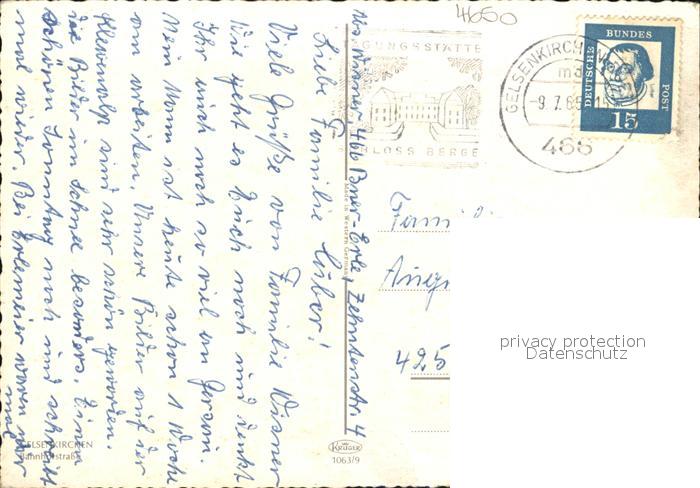 4650
GUNGSSTÄTTE
LOSS BERGE
GELSENKIRCH
-9.7.6
466
DEUTSCHE
BUNDES
POST
15
Abs. Wisner 466 Buer-Erle, Zehntenstr. 4
Liebe Familie
Viele Grüße von Familie Wisner
Wie geht es Euch noch und denkt
Ihr auch noch so viel an
Mein Mann ist heute schon 1 Woche
am arbeiten. Unsere Bilder auf der
sind sehr schön geworden.
die Bilder im Schnee besonders. Einen
schönen Sonntag noch und schreibt
mal wieder. Bei waren wir
Made in Western Germany
Fami
Aug
425
KRÜGER
1063/9
GELSENKIRCHEN
Bahnhofstraße
privacy protection
Datenschutz